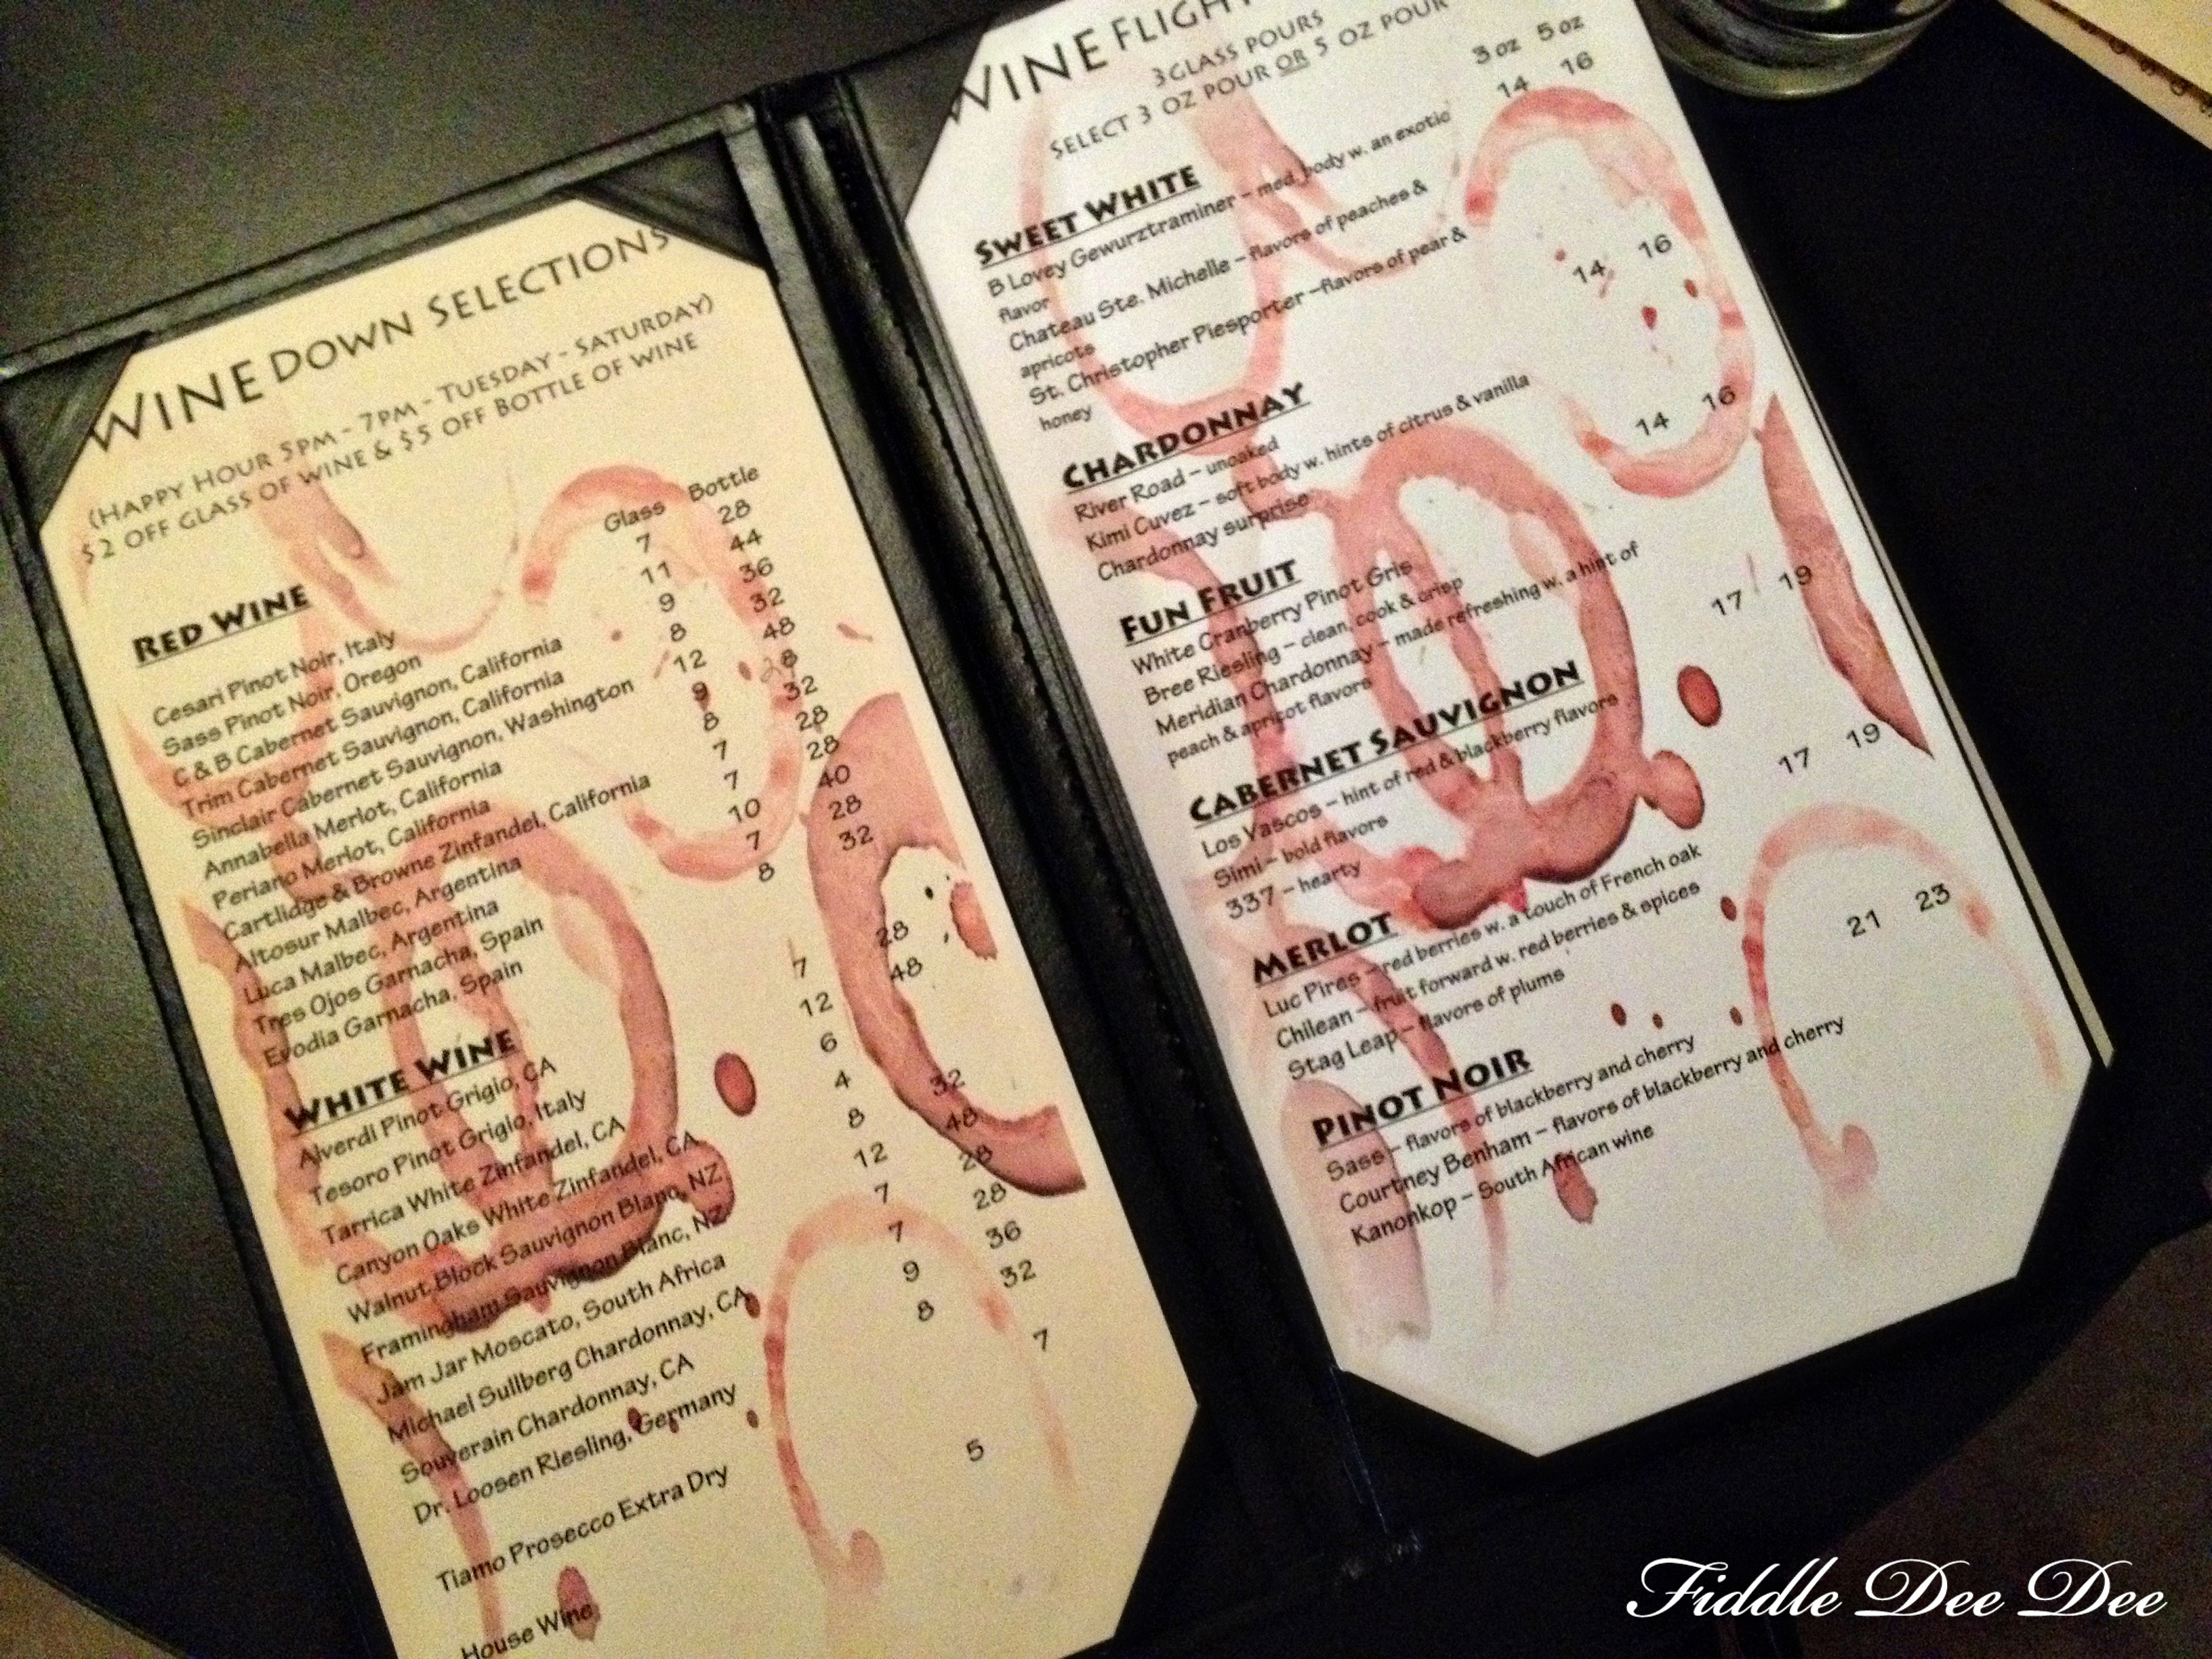 WINE DOWN SELECTIONS
(HAPPY HOUR 5PM - 7PM - TUESDAY - SATURDAY)
$2 OFF GLASS OF WINE & $5 OFF BOTTLE OF WINE
Glass Bottle
RED WINE
Cesari Pinot Noir, Italy 7 28
Sass Pinot Noir, Oregon 11 44
C & B Cabernet Sauvignon, California 9 36
Trim Cabernet Sauvignon, California 8 32
Sinclair Cabernet Sauvignon, Washington 12 48
Annabella Merlot, California 9 28
Periano Merlot, California 8 32
Cartlidge & Browne Zinfandel, California 7 28
Altosur Malbec, Argentina 7 28
Luca Malbec, Argentina 10 40
Tres Ojos Garnacha, Spain 7 28
Evodia Garnacha, Spain 8 32
WHITE WINE
Alverdi Pinot Grigio, CA 7 28
Tesoro Pinot Grigio, Italy 12 48
Tarrica White Zinfandel, CA 6
Canyon Oaks White Zinfandel, CA 4
Walnut Block Sauvignon Blanc, NZ 8 32
Framingham Sauvignon Blanc, NZ 12 48
Jam Jar Moscato, South Africa 7 28
Michael Sullberg Chardonnay, CA 7 28
Souverain Chardonnay, CA 9 36
Dr. Loosen Riesling, Germany 8 32
Tiamo Prosecco Extra Dry 7
House Wine 5
WINE FLIGHT
3 GLASS POURS
SELECT 3 OZ POUR OR 5 OZ POUR
3 oz 5 oz
SWEET WHITE 14 16
B Lovey Gewurztraminer – med. body w. an exotic
flavor
Chateau Ste. Michelle – flavors of peaches &
apricots
St. Christopher Piesporter –flavors of pear &
honey
CHARDONNAY 14 16
River Road – unoaked
Kimi Cuvez – soft body w. hints of citrus & vanilla
Chardonnay surprise
FUN FRUIT 14 16
White Cranberry Pinot Gris
Bree Riesling – clean, cook & crisp
Meridian Chardonnay – made refreshing w. a hint of
peach & apricot flavors
CABERNET SAUVIGNON 17 19
Los Vascos – hint of red & blackberry flavors
Simi – bold flavors
337 – hearty
MERLOT 17 19
Luc Pires – red berries w. a touch of French oak
Chilean – fruit forward w. red berries & spices
Stag Leap – flavors of plums
PINOT NOIR 21 23
Sass – flavors of blackberry and cherry
Courtney Benham – flavors of blackberry and cherry
Kanonkop – South African wine
Fiddle Dee Dee